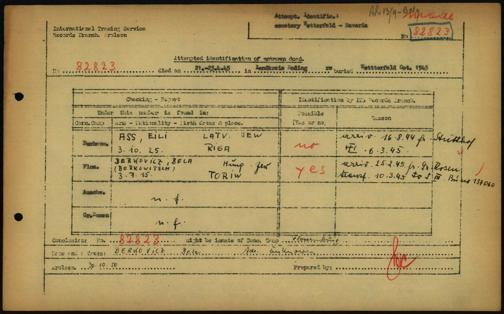 International Tracing Service
Records Branch. Arolsen
Attempt. Identific.:
cemetery Wetterfeld - Bavaria
82823
Attempted identification of unknown dead.
No 82823 died on 21.-23.4.45 in Landkreis Roding no buried Wetterfeld Oct. 1945
Checking - Report
Identification by ITS Records Branch.
Under this number is found in:
Possible
Yes or no.
Reason
Conc. Camp Name - Nationality - Birth date & place.
ASS, EILI LATV. JEW
3.10.25. RIGA
no
arriv. 16.8.44 fr. Stutthof
6.3.45.
Flos. BERKOVICZ, BELA Hung. Jew
(BERKOWITSCH)
3.7.15. TORIW
yes
arriv. 25.2.45 fr. Gr. Rosen
transf. 10.3.45 to
n. f.
n. f.
Conclusion: No. 82823 might be inmate of Conc. Camp
Name and address: BERKOVICZ Bela
Arolsen: Prepared by: